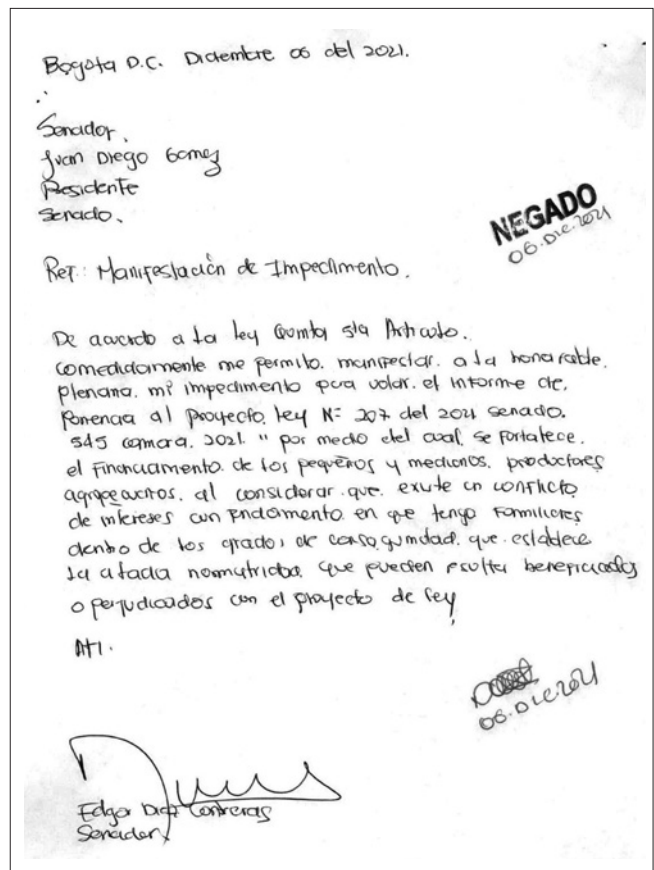 Bogota D.C. Diciembre 06 del 2021.
Senador,
Juan Diego Gomez
Presidente
Senado,
NEGADO
06.Dic.2021
Ref: Manifestación de Impedimento.
De acuerdo a la ley Quinta 5ta Articulo.
comedidamente me permito. manifestar. a la honorable.
plenaria. mi impedimento para votar. el informe de.
Ponencia al proyecto. ley N= 207 del 2021 senado.
545 camara. 2021. " por medio del cual. se Fortalece.
el Financiamento. de los pequeños y medianos. productores
agropecuarios. al considerar. que. existe un conflicto
de intereses con Fndamento. en que tengo Familiares
dentro de los grados de consaguinidad. que. establece
la citada que pueden resultar beneficiados
o perjudicados con el proyecto de ley
Att.
06.Dic.2021
Edgar Diaz Contreras
Senador